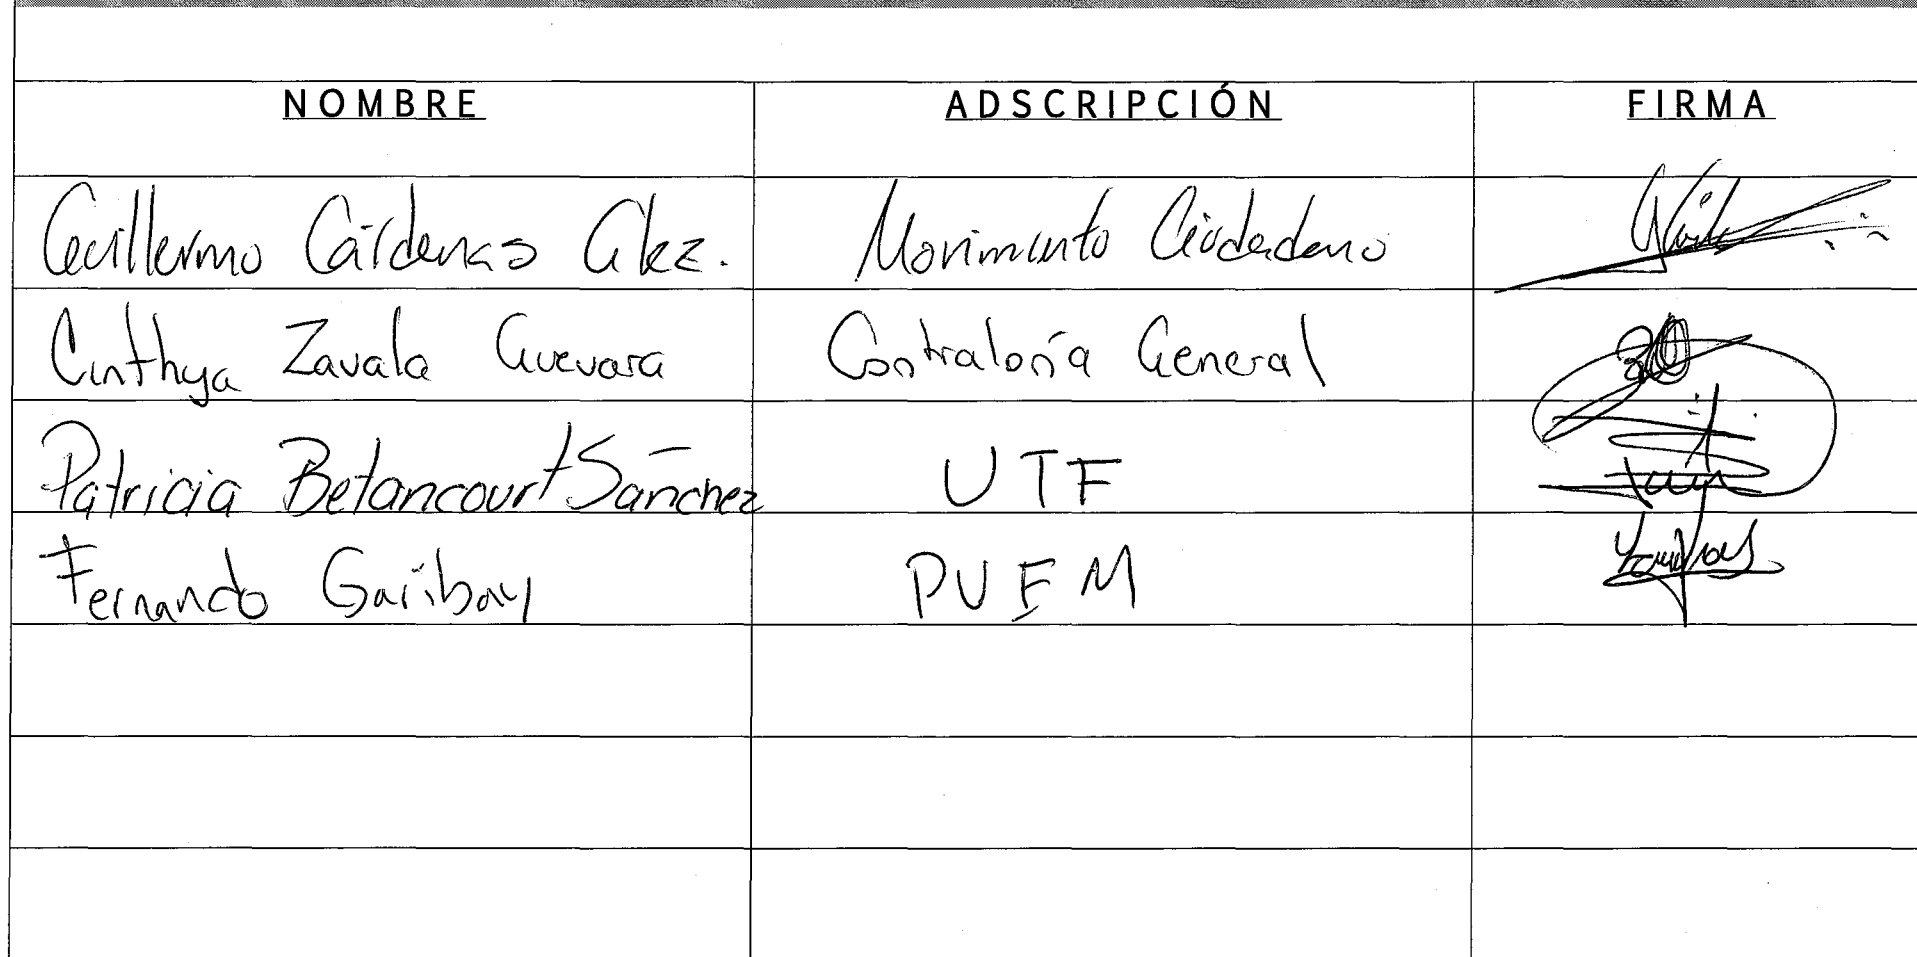 NOMBRE ADSCRIPCIÓN FIRMA
Guillermo Cárdenas Glez. Movimiento Ciudadano
Cinthya Zavala Guevara Contraloría General
Patricia Betancourt Sánchez UTF
Fernando Garibay PVEM